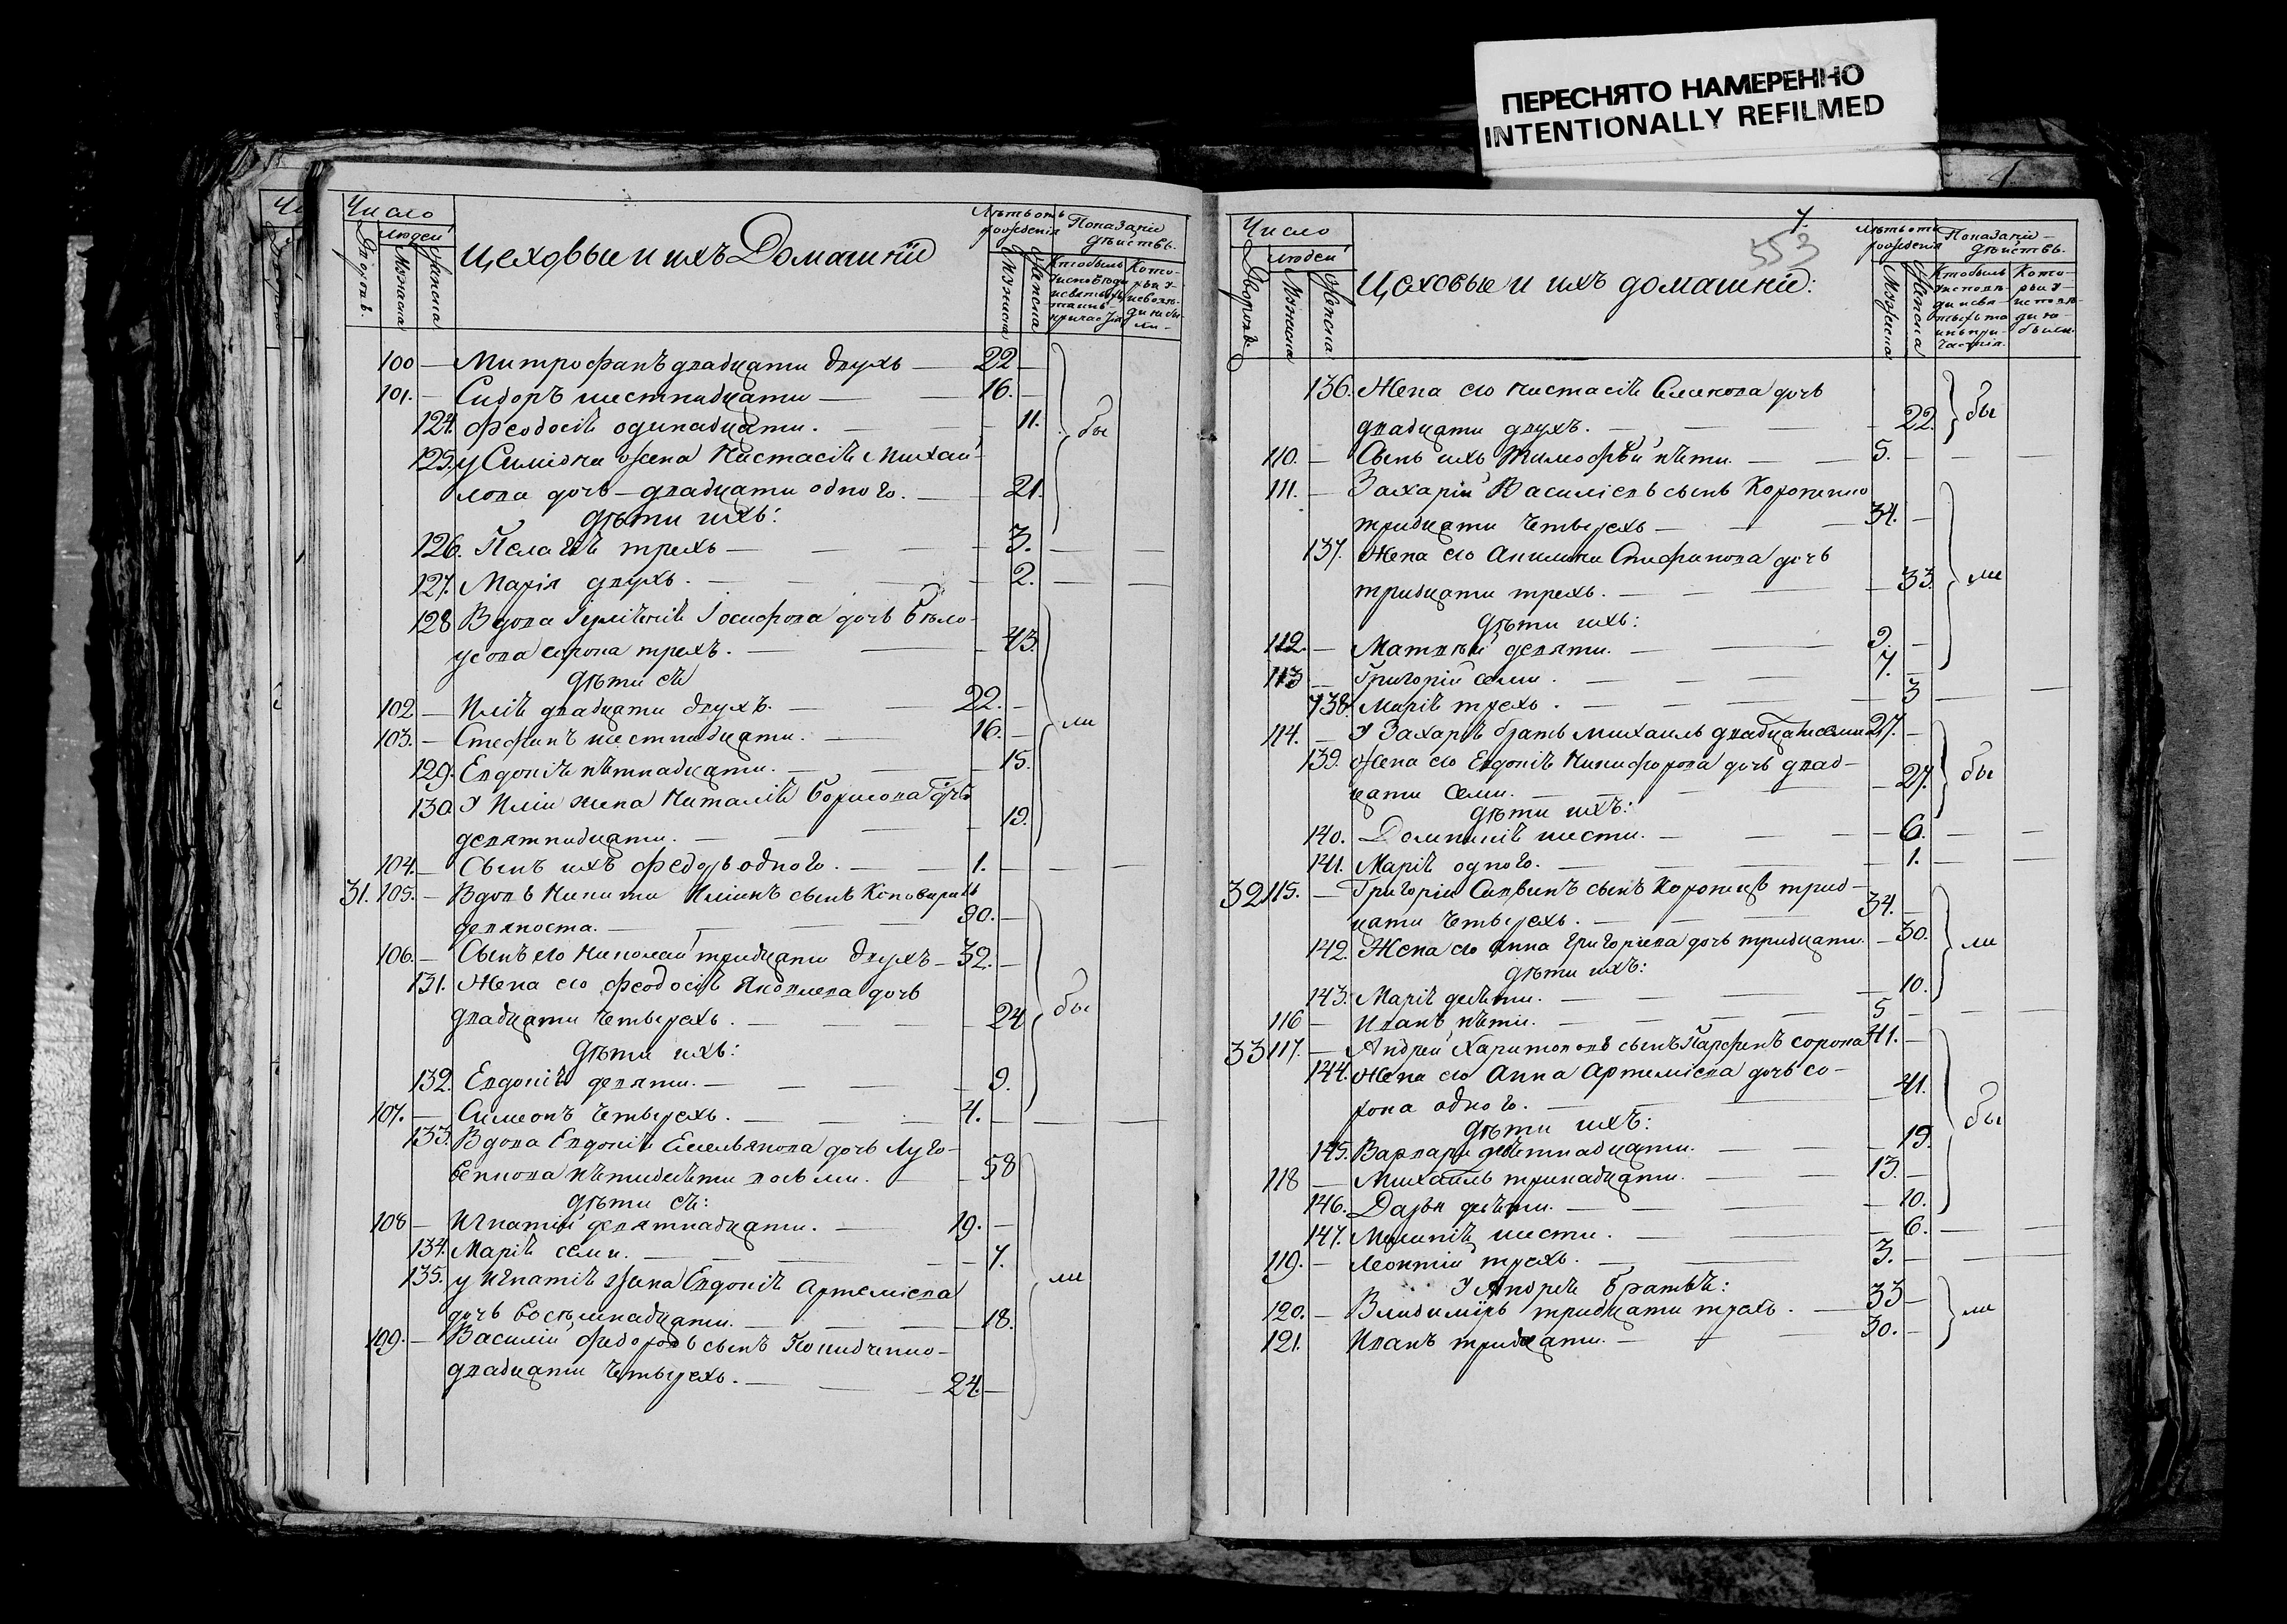 ПЕРЕСНЯТО НАМЕРЕННО
INTENTIONALLY REFILMED
Число
людей
Дворовъ.
Мужеска
Женска
Цеховые и ихъ Домашніе
Лѣтъ отъ рожденія
Мужеска
Женска
Показаніе дѣйствъ.
100 — Митрофанъ двадцати двухъ — 22 —
101. — Сидоръ шестнадцати — 16. —
124. Феодосія одинадцати. — 11.
бы
125. у Симіона жена Настасія Михай-
лова дочь — двадцати одного. — 21.
дѣти ихъ:
126. Пелагія трехъ — 3. —
127. Марія двухъ. — 2. —
128 Вдова Іосифова дочь Бѣло-
усова сорока трехъ. — 43.
дѣти ея
102 — Илія двадцати двухъ. — 22. —
103. — Стефанъ шестнадцати. — 16. —
ли
129. Евдокія пятнадцати. — 15.
130. У Иліи жена Наталія Борисова дочь
девятнадцати. — 19.
104. — Сынъ ихъ Федоръ одного. — 1. —
31. 105. — Вдовъ Никита Иліинъ сынъ
девяноста. — 90. —
106. — Сынъ его Николай тридцати двухъ — 32. —
131. Жена его Феодосія Яковлева дочь
двадцати четырехъ. — 24
бы
дѣти ихъ:
132. Евдокія девяти. — 9.
107. — Симеонъ четырехъ. — 4. —
133. Вдова Евдокія Емельянова дочь Луго-
венкова пятидесяти восьми. — 58
дѣти ея:
108 — Игнатій девятнадцати. — 19. —
134. Марія семи. — 7.
135. у Игнатія жена Евдокія Артеміева
ли
дочь восемнадцати. — 18.
109. — Василій Федоровъ сынъ
двадцати четырехъ. — 24. —
7.
553
Число
людей
Дворовъ.
Мужеска
Женска
Цеховые и ихъ домашніе:
Лѣтъ отъ рожденія
Мужеска
Женска
Показаніе дѣйствъ.
136. Жена его Настасія Семенова дочь
двадцати двухъ. — 22.
бы
110. — Сынъ ихъ Тимофѣй пяти. — 5. —
111. — Захарій Василіевъ сынъ
тридцати четырехъ — 34. —
137. Жена его Акилина Стефанова дочь
тридцати трехъ. — 33.
ли
дѣти ихъ:
112. — Матвѣй девяти. — 9. —
113 — Григорій семи. — 7. —
138. Марія трехъ. — 3 —
114. — У Захарія братъ Михаилъ двадцати семи 27. —
139. Жена его Евдокія Никифорова дочь двад-
цати семи. — 27.
бы
дѣти ихъ:
140. Домникія шести. — 6. —
141. Марія одного. — 1. —
32 115. — Григорій Саввинъ сынъ трид-
цати четырехъ. — 34. —
142. Жена его Анна Григоріева дочь тридцати. — 30.
ли
дѣти ихъ:
143. Марія десяти. — 10.
116 — Иванъ пяти. — 5 —
33 117. — Андрей Харитоновъ сынъ сорока 41. —
144. Жена его Анна Артеміева дочь со-
рока одного. — 41.
бы
дѣти ихъ:
145. Варвара девятнадцати. — 19.
118 — Михаилъ тринадцати. — 13. —
146. Дарья десяти. — 10.
147. Меланія шести. — 6. —
119. — Леонтій трехъ. — 3. —
У Андрея братья:
120. — Владиміръ тридцати трехъ. — 33 —
ли
121. Иванъ тридцати. — 30. —